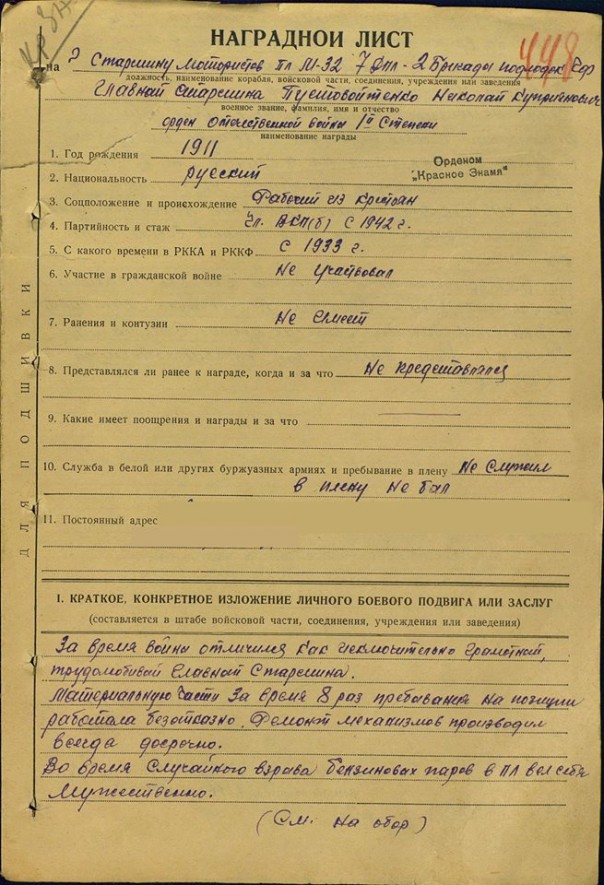 НАГРАДНОЙ ЛИСТ
448
на Старшину мотористов пл М-32 7 Дтп - 2 Бригады подлодок
должность, наименование корабля, войсковой части, соединения, учреждения или заведения
Главный старшина Пустовойтенко Николай Куприянович
военное звание, фамилия, имя и отчество
орден Отечественной войны 1й Степени
наименование награды
1. Год рождения 1911
Орденом
„Красное Знамя"
2. Национальность русский
3. Соцположение и происхождение Рабочий из крестьян
4. Партийность и стаж Чл. ВКП(б) с 1942 г.
5. С какого времени в РККА и РККФ с 1933 г.
6. Участие в гражданской войне Не участвовал
7. Ранения и контузии Не имеет
8. Представлялся ли ранее к награде, когда и за что Не представлялся
9. Какие имеет поощрения и награды и за что
10. Служба в белой или других буржуазных армиях и пребывание в плену Не служил
в плену не был
11. Постоянный адрес
ДЛЯ ПОДШИВКИ
1. КРАТКОЕ, КОНКРЕТНОЕ ИЗЛОЖЕНИЕ ЛИЧНОГО БОЕВОГО ПОДВИГА ИЛИ ЗАСЛУГ
(составляется в штабе войсковой части, соединения, учреждения или заведения)
За время войны отличился как исключительно грамотный,
трудолюбивый Главный Старшина.
Материальную часть за время 8 раз пребывания на позиции
работала безотказно. Ремонт механизмов производил
всегда досрочно.
Во время случайного взрыва бензиновых паров в ПЛ вел себя
мужественно.
(См. на обор)